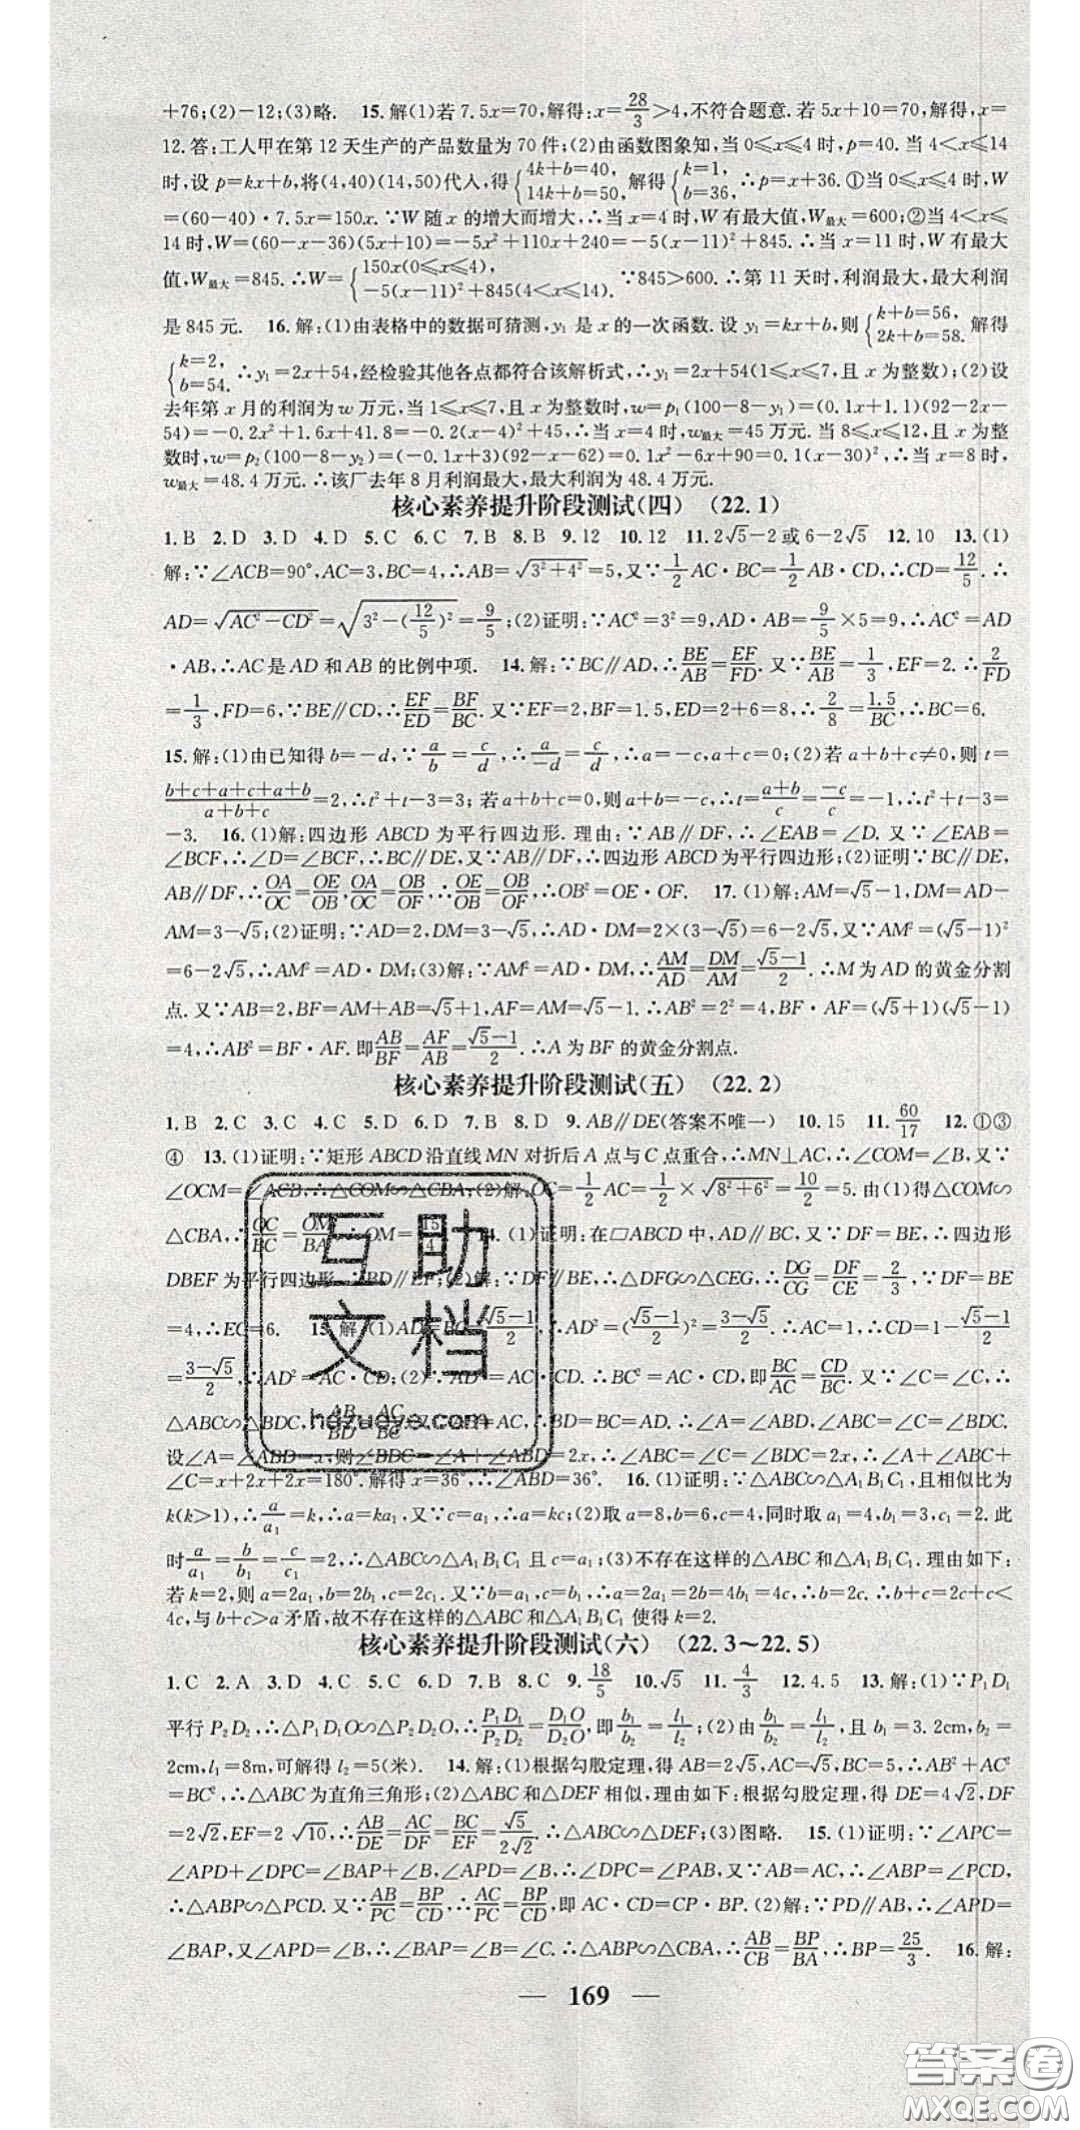 +76;(2)-12;(3)略. 15.解(1)若7.5x=70,解得:x=28/3>4,不符合题意.若5x+10=70,解得,x=
12.答:工人甲在第12天生产的产品数量为70件;(2)由函数图象知,当0⩽x⩽4时,p=40.当4<x⩽14
时,设p=kx+b,将(4,40)(14,50)代人,得{4k+b=40, 14k+b=50,解得{k=1, b=36,∴p=x+36.①当0⩽x⩽4时,W
=(60-40)·7.5x=150x.∵W随x的增大而增大,∴当x=4时,W有最大值,W最大=600;②当4<x⩽
14时,W=(60-x-36)(5x+10)=-5x²+110x+240=-5(x-11)²+845.∴当x=11时,W有最大
值,W最大=845.∴W={150x(0⩽x⩽4), -5(x-11)²+845(4<x⩽14). ∵845>600.∴第11天时,利润最大,最大利润
是845元. 16.解:(1)由表格中的数据可猜测,y₁是x的一次函数.设y₁=kx+b,则{k+b=56, 2k+b=58.解得
{k=2, b=54.∴y₁=2x+54,经检验其他各点都符合该解析式,∴y₁=2x+54(1⩽x⩽7,且x为整数);(2)设
去年第x月的利润为w万元,当1⩽x⩽7,且x为整数时,w=p₁(100-8-y₁)=(0.1x+1)(92-2x-
54)=-0.2x²+1.6x+41.8=-0.2(x-4)²+45,∴当x=4时,w最大=45万元.当8⩽x⩽12,且x为整
数时,w=p₂(100-8-y₂)=(-0.1x+3)(92-x-62)=0.1x²-6x+90=0.1(x-30)²,∴当x=8时,
w最大=48.4万元.∴该厂去年8月利润最大,最大利润为48.4万元.
核心素养提升阶段测试(四) (22.1)
1.B 2.D 3.D 4.D 5.C 6.C 7.B 8.B 9.12 10.12 11.2√5-2或6-2√5 12.10 13.(1)
解:∵∠ACB=90°,AC=3,BC=4,∴AB=√(3²+4²)=5,又∵1/2AC·BC=1/2AB·CD,∴CD=12/5.∴
AD=√(AC²-CD²)=√(3²-(12/5)²)=9/5;(2)证明:∵AC²=3²=9,AD·AB=9/5×5=9,∴AC²=AD
·AB,∴AC是AD和AB的比例中项. 14.解:∵BC∥AD,∴BE/AB=EF/FD.又∵BE/AB=1/3,EF=2.∴2/FD
=1/3,FD=6,∵BE∥CD,∴EF/ED=BF/BC.又∵EF=2,BF=1.5,ED=2+6=8,∴2/8=1.5/BC,∴BC=6.
15.解:(1)由已知得b=-d,∵a/b=c/d,∴a/-d=c/d,∴a=-c,a+c=0;(2)若a+b+c≠0,则t=
(b+c+a+c+a+b)/(a+b+c)=2,∴t²+t-3=3;若a+b+c=0,则a+b=-c,∴t=(a+b)/c=-c/c=-1,∴t²+t-3=
-3. 16.(1)解:四边形ABCD为平行四边形.理由:∵AB∥DF,∴∠EAB=∠D.又∵∠EAB=
∠BCF,∴∠D=∠BCF,∴BC∥DE,又∵AB∥DF,∴四边形ABCD为平行四边形;(2)证明∵BC∥DE,
AB∥DF,∴OA/OC=OE/OB,OA/OC=OB/OF,∴OE/OB=OB/OF,∴OB²=OE·OF. 17.(1)解:AM=√5-1,DM=AD-
AM=3-√5;(2)证明:∵AD=2,DM=3-√5,∴AD·DM=2×(3-√5)=6-2√5,又∵AM²=(√5-1)²
=6-2√5,∴AM²=AD·DM;(3)解:∵AM²=AD·DM,∴AM/AD=DM/AM=(√5-1)/2.∴M为AD的黄金分割
点.又∵AB=2,BF=AM+AB=√5+1,AF=AM=√5-1.∴AB²=2²=4,BF·AF=(√5+1)(√5-1)
=4,∴AB²=BF·AF.即AB/BF=AF/AB=(√5-1)/2.∴A为BF的黄金分割点.
核心素养提升阶段测试(五) (22.2)
1.B 2.C 3.C 4.B 5.D 6.D 7.B 8.D 9.AB∥DE(答案不唯一) 10.15 11.60/17 12.①③
④ 13.(1)证明:∵矩形ABCD沿直线MN对折后A点与C点重合,∴MN⊥AC,∴∠COM=∠B,又∵
∠OCM=∠ACB,∴△COM∽△CBA;(2)解:OC=1/2AC=1/2×√(8²+6²)=10/2=5.由(1)得△COM∽
△CBA,∴OC/BC=OM/BA,∴OM=15/4. 14.(1)证明:在▱ABCD中,AD∥BC,又∵DF=BE,∴四边形
DBEF为平行四边形,∴BD∥EF;(2)解:∵DF∥BE,∴△DFG∽△CEG,∴DG/CG=DF/CE=2/3,∵DF=BE
=4,∴EC=6. 15.解:(1)AD=BC=(√5-1)/2,∴AD²=((√5-1)/2)²=(3-√5)/2.∴AC=1,∴CD=1-(√5-1)/2
=(3-√5)/2,∴AD²=AC·CD;(2)∵AD²=AC·CD.∴BC²=AC·CD,即BC/AC=CD/BC.又∵∠C=∠C,∴
△ABC∽△BDC,∴AB/BD=AC/BC.又∵AB=AC,∴BD=BC=AD.∴∠A=∠ABD,∠ABC=∠C=∠BDC.
设∠A=∠ABD=x,则∠BDC=∠A+∠ABD=2x,∴∠ABC=∠C=∠BDC=2x,∴∠A+∠ABC+
∠C=x+2x+2x=180°.解得x=36°,∴∠ABD=36°. 16.(1)证明:∵△ABC∽△A₁B₁C₁,且相似比为
k(k>1),∴a/a₁=k,∴a=ka₁,又∵c=a₁,∴a=kc;(2)取a=8,b=6,c=4,同时取a₁=4,b₁=3,c₁=2.此
时a/a₁=b/b₁=c/c₁=2,∴△ABC∽△A₁B₁C₁且c=a₁;(3)不存在这样的△ABC和△A₁B₁C₁.理由如下:
若k=2,则a=2a₁,b=2b₁,c=2c₁.又∵b=a₁,c=b₁,∴a=2a₁=2b=4b₁=4c,∴b=2c.∴b+c=2c+c<
4c,与b+c>a矛盾,故不存在这样的△ABC和△A₁B₁C₁使得k=2.
核心素养提升阶段测试(六) (22.3~22.5)
1.C 2.A 3.D 4.C 5.C 6.D 7.B 8.C 9.18/5 10.√5 11.4/3 12.4.5 13.解:(1)∵P₁D₁
平行P₂D₂,∴△P₁D₁O∽△P₂D₂O,∴P₁D₁/P₂D₂=D₁O/D₂O,即b₁/b₂=l₁/l₂;(2)由b₁/b₂=l₁/l₂,且b₁=3.2cm,b₂=
2cm,l₁=8m,可解得l₂=5(米). 14.解:(1)根据勾股定理,得AB=2√5,AC=√5,BC=5,∴AB²+AC²
=BC²,∴△ABC为直角三角形;(2)△ABC和△DEF相似,理由如下:根据勾股定理,得DE=4√2,DF
=2√2,EF=2√10,∴AB/DE=AC/DF=BC/EF=√5/2√2.∴△ABC∽△DEF;(3)图略. 15.(1)证明:∵∠APC=
∠APD+∠DPC=∠BAP+∠B,∠APD=∠B,∴∠DPC=∠PAB,又∵AB=AC,∴∠ABP=∠PCD,
∴△ABP∽△PCD.又∵AB/PC=BP/CD,∴AC/PC=BP/CD,即AC·CD=CP·BP.(2)解:∵PD∥AB,∴∠APD=
∠BAP,又∠APD=∠B,∴∠BAP=∠B=∠C.∴△ABP∽△CBA,∴AB/CB=BP/BA,∴BP=25/3. 16.解:
— 169 —
互助
文档
hdzuoye.com
答案圈
MXQE.COM